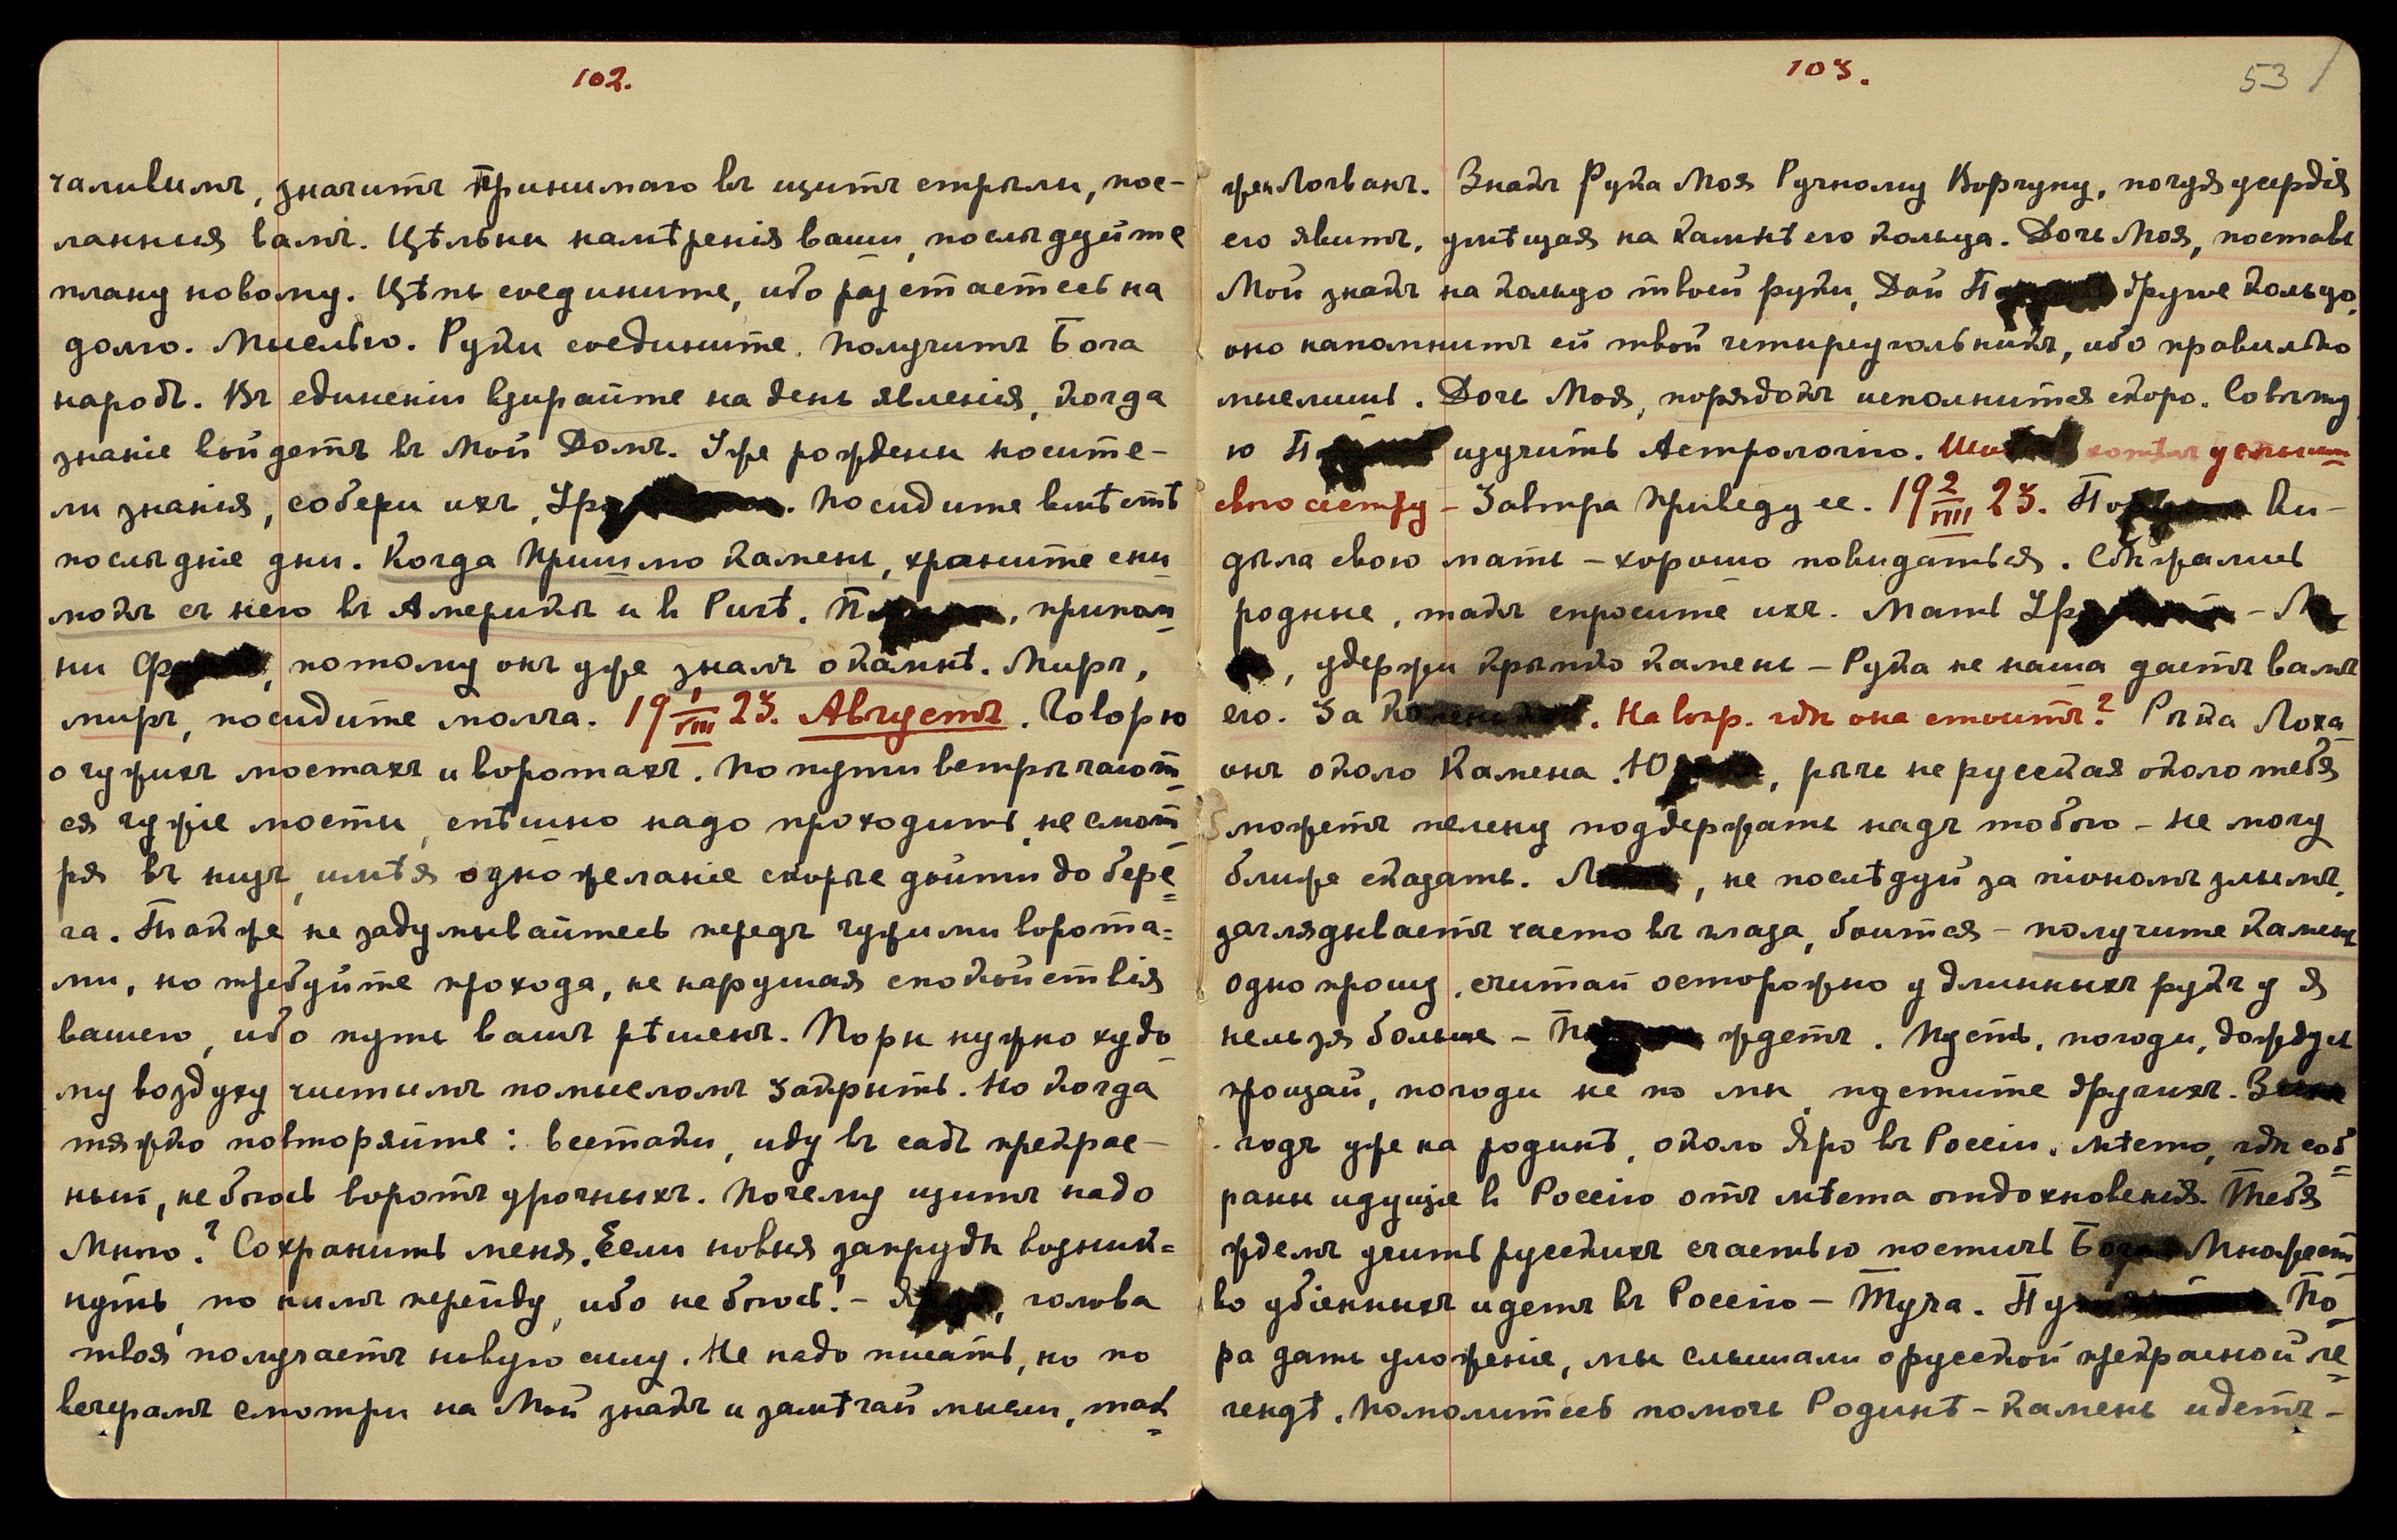 102.
чаливымъ, значитъ Принимаю въ щитъ стрѣлы, пос-
ланныя вамъ. Цѣльны намѣренія ваши, послѣдуйте
плану новому. Цѣпь соедините, ибо разстаетесь на
долго. Мыслью. Руки соедините. Получитъ Бога
народъ. Въ единеніи взирайте на день явленія, когда
знаніе войдетъ въ Мой Домъ. Уже рождены носите-
ли знанія, собери ихъ, Ур. Посидите вмѣстѣ
послѣдніе дни. Когда Пришлю Камень, храните сни
мокъ съ него въ Америкѣ и в Ригѣ. П, припом
ни Ф, потому онъ уже зналъ о Камнѣ. Миръ,
миръ, посидите молча. 19 I/VIII 23. Августъ. Говорю
о чужихъ мостахъ и воротахъ. По пути встрѣчают
ся чужіе мосты, спѣшно надо проходить, не смот
ря въ низъ, имѣя одно желаніе скорѣе дойти до бере
га. Также не задумывайтесь передъ чужими ворота=
ми, но требуйте прохода, не нарушая спокойствія
вашего, ибо путь вашъ рѣшенъ. Поры нужно худо
му воздуху чистымъ помысломъ закрыть. Но когда
тяжко повторяйте: встаки, иду въ садъ прекрас-
ный, не боюсь воротъ урочныхъ. Почему щитъ надо
Мною? Сохранить меня. Если новыя запруды возник=
нутъ, по нимъ перейду, ибо не боюсь! - Я, голова
твоя получаетъ новую силу. Не надо писать, но по
вечерамъ смотри на Мой знакъ и замѣчай мысли, так
103.
53
жен Логванъ. Знакъ Рука Моя Ручному Ворчуну, почуя усердія
его явитъ, умѣщая на Камнѣ его кольца. Дочь Моя, поставь
Мой знакъ на кольцо твоей руки, Дай П друже кольцо,
оно напомнитъ ей твой четыреугольникъ, ибо правильно
мыслишь. Дочь Моя, порядокъ исполнится скоро. Совѣту
ю П изучить Астрологію. хотѣлъ услыш
свою сестру - Завтра Приведу ее. 19 2/VIII 23. По ви-
дѣла свою мать - хорошо повидаться. Съѣжались
родные, такъ спросите ихъ. Мать Ур - М
, удержи крѣпко камень - Рука не наша дастъ вамъ
его. За. На вопр. гдѣ она стоитъ? Рѣка Лоха
онъ около Камена. Ю, рѣчь не русская около тебя
можетъ пелену поддержать надъ тобою - не могу
ближе сказать. Л, не послѣдуй за піономъ злымъ,
заглядываетъ часто въ глаза, боится - получите камень
одно прошу, считай осторожно у длинныхъ рукъ у я
нельзя больше - П ждетъ. Пусть, погоди, дождусь
прощай, погоди не по мы, пустите другихъ. З
годъ уже на родинѣ, около Яро въ Россіи. Мѣсто, гдѣ соб
раны идущіе в Россію отъ мѣста отдохновенія. Тебя
ждемъ учить русскихъ счастью постичь Бо Множест
во убіенныхъ идетъ въ Россію - Туча. Пу По
ра дать уложеніе, мы слышали о русской прекрасной ле
гендѣ. Помолитесь помочь Родинѣ - Камень идетъ -